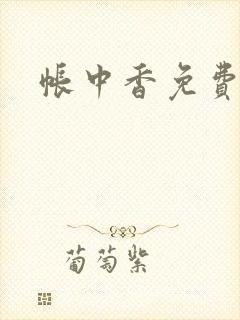 帐中香免费
葡萄紫